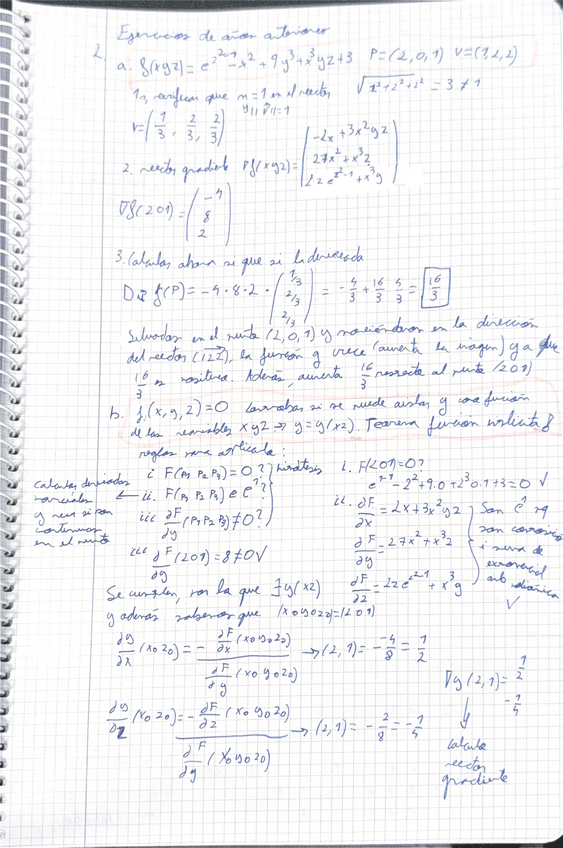 Ejercicios de años anteriores
2.
a. f(xyz) = e^{z²-1} - x² + 9y³ + x³yz + 3 P=(2,0,1) V=(1,2,2)
1º, verificar que n=1 en el vector √(1²+2²+2²) = 3 ≠ 1
V = (1/3, 2/3, 2/3)
2. vector gradiente ∇f(xyz) = (-2x + 3x²yz
27x² + x³z
2z e^{z²-1} + x³y)
∇f(201) = (-4
8
2)
3. Calculas ahora si que si la derivada
f(P) = -4 · 8 · 2 · (1/3
2/3
2/3) = -4/3 + 16/3 4/3 = 16/3
Situados en el punto (2,0,1) y moviéndonos en la dirección
del vector (122), la función f crece (aumenta la imagen) ya que
16/3 es positiva. Además, aumenta 16/3 respecto al punto (201)
b. f(x,y,z)=0 comprobar si se puede aislar y como función
de las variables xyz → y=y(xz). Teorema función implícita
reglas para aplicarla:
i F(P₁ P₂ P₃) = 0 ? hipótesis
calculas derivadas parciales y ves si son continuas en el punto ← ii. F(P₁ P₂ P₃) ∈ C¹?
iii ∂F/∂y (P₁ P₂ P₃) ≠ 0?
i. F(201)=0?
e^{1-1} - 2² + 9·0 + 2³·0·1 + 3 = 0 √
ii. ∂F/∂x = 2x + 3x²yz
∂F/∂y = 27x² + x³z
∂F/∂z = 2z e^{z²-1} + x³y
Son C¹ pq
son
i suma de
exponencial
√
iii ∂F/∂y (201) = 8 ≠ 0 √
Se cumplen, por lo que ∃ y(xz)
y además sabemos que (x₀y₀z₀)=(201)
∂y/∂x (x₀z₀) = - ∂F/∂x (x₀y₀z₀) / ∂F/∂y (x₀y₀z₀) → (2,1) = - -4/8 = 1/2
∂y/∂z (x₀z₀) = - ∂F/∂z (x₀y₀z₀) / ∂F/∂y (x₀y₀z₀) → (2,1) = - 2/8 = -1/4
∇y(2,1) = 1/2
-1/4
↓
calcula
vector
gradiente